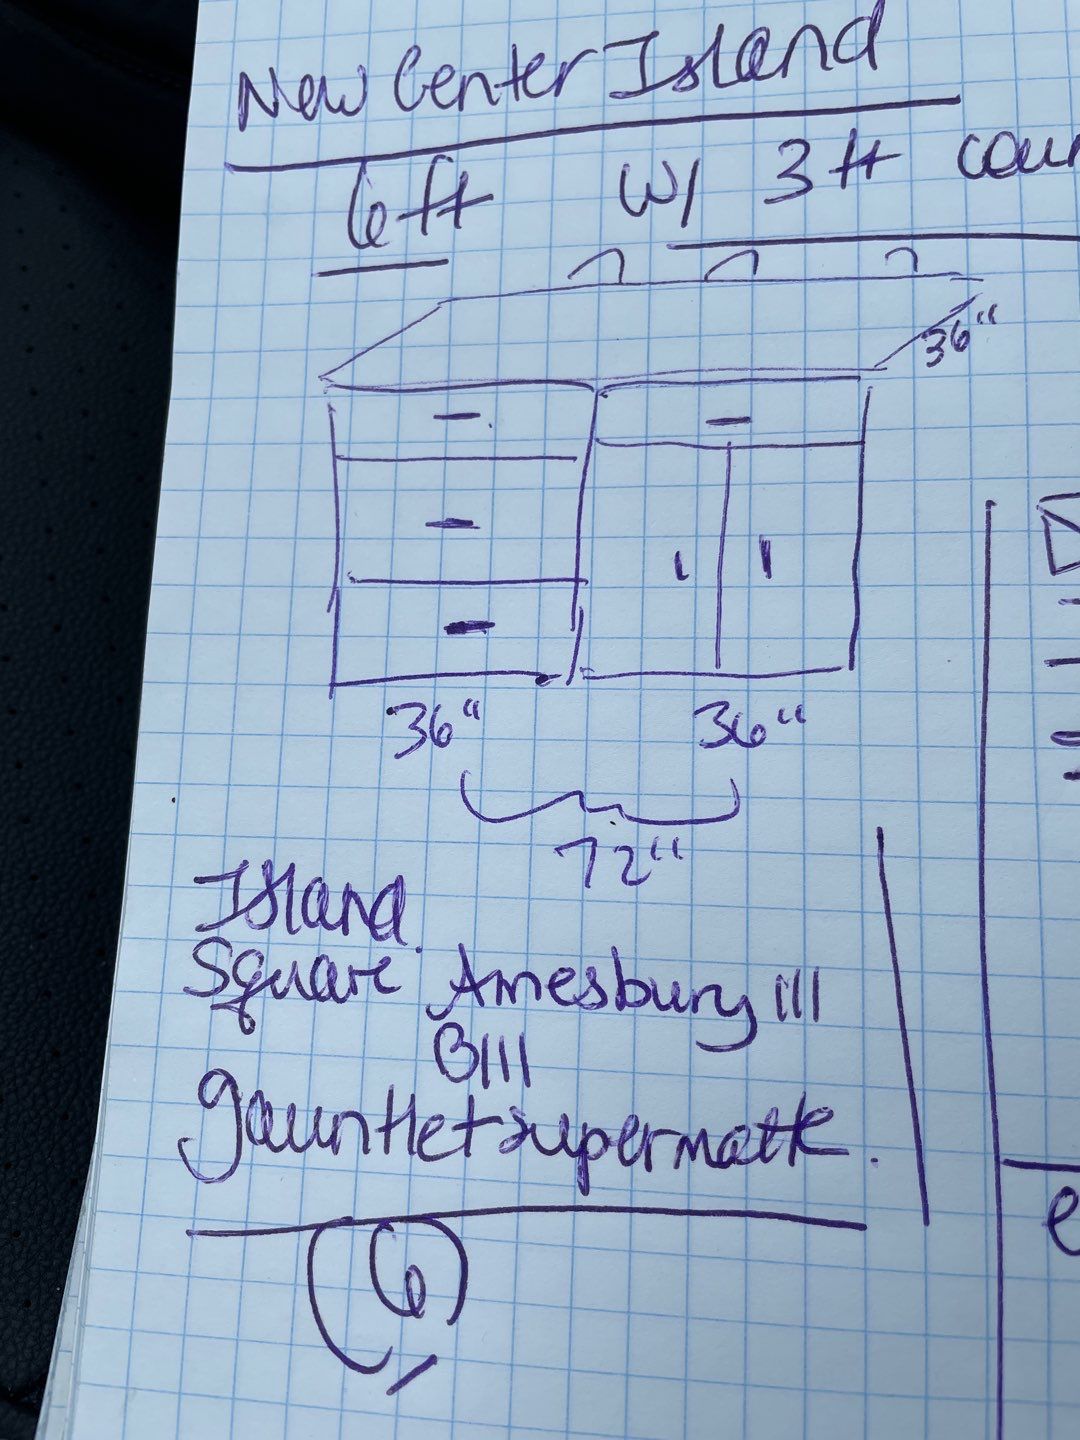 New Center Island
6ft w/ 3ft coun
36"
36" 36"
72"
Island.
Square Amesbury III
BIII
gauntlet supermatte.
6
e